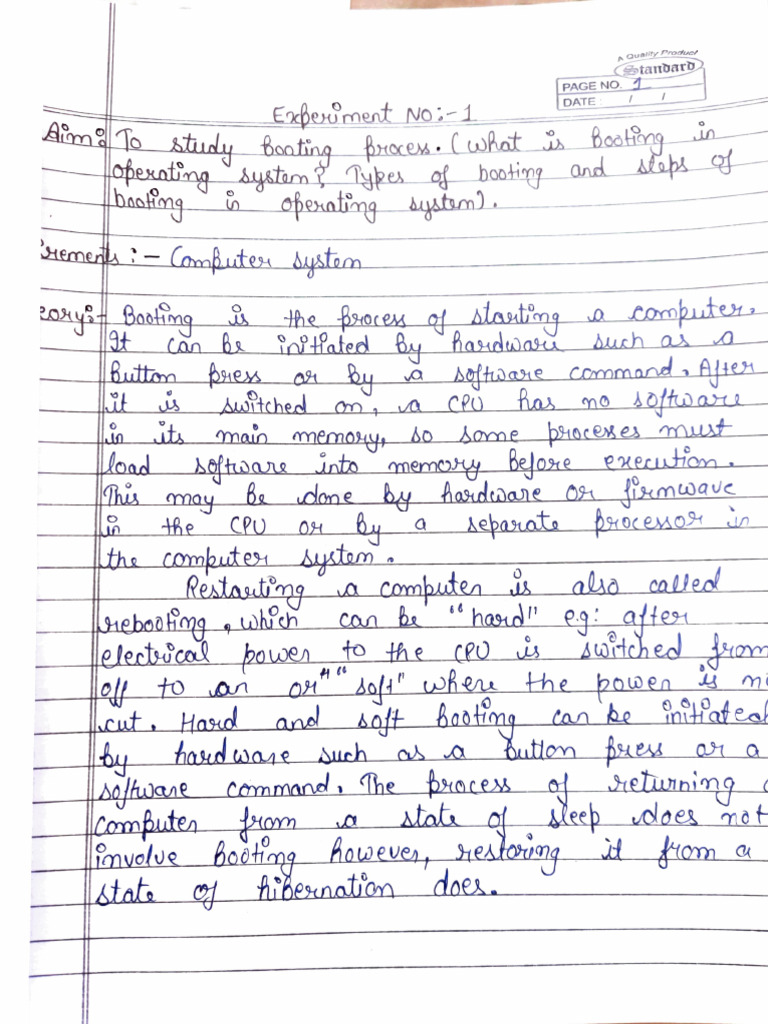 A Quality Product
Standard
PAGE NO. 1
DATE: / /
Experiment No:-1
Aim: To study booting process. (What is Booting in
operating system? Types of booting and steps of
booting in operating system).
irements :- Computer system
eory:- Booting is the process of starting a computer.
It can be initiated by hardware such as a
button press or by a software command. After
it is switched on, a CPU has no software
in its main memory, so some processes must
load software into memory before execution.
This may be done by hardware or firmwave
in the CPU or by a separate processor in
the computer system.
Restarting a computer is also called
rebooting, which can be "hard" eg: after
electrical power to the CPU is switched from
off to an or "" soft" where the power is
cut. Hard and soft booting can be initiated
by hardware such as a button press or a
software command. The process of returning
computer from a state of sleep does not
involve booting however, restoring it from a
state of hibernation does.